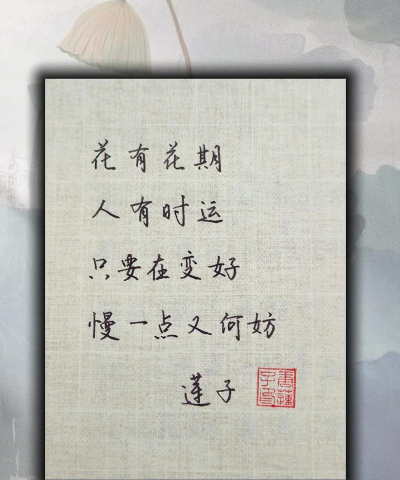 花有花期
人有时运
只要在变好
慢一点又何妨
莲子